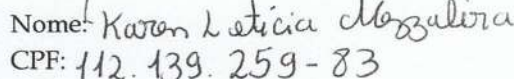 Nome: Karen Letícia Mezzalira
CPF: 112.139.259-83